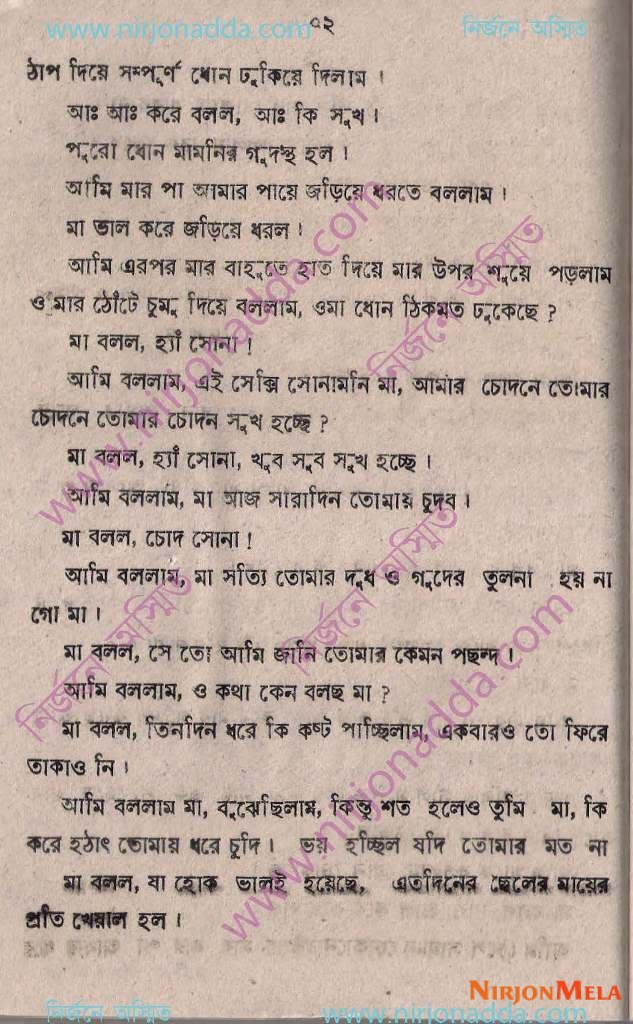 www.nirjonadda.com ৩২ নির্জনে অস্মিত
ঠাপ দিয়ে সম্পূর্ণ ধোন ঢুকিয়ে দিলাম।
আঃ আঃ করে বলল, আঃ কি সুখ।
পুরো ধোন মামনির গুদস্থ হল।
আমি মার পা আমার পায়ে জড়িয়ে ধরতে বললাম।
মা ভাল করে জড়িয়ে ধরল।
আমি এরপর মার বাহুতে হাত দিয়ে মার উপর শুয়ে পড়লাম
ও মার ঠোঁটে চুমু দিয়ে বললাম, ওমা ধোন ঠিকমত ঢুকেছে ?
মা বলল, হ্যাঁ সোনা !
আমি বললাম, এই সেক্সি সোনামনি মা, আমার চোদনে তোমার
চোদনে তোমার চোদন সুখ হচ্ছে ?
মা বলল, হ্যাঁ সোনা, খুব সুব সুখ হচ্ছে।
আমি বললাম, মা আজ সারাদিন তোমায় চুদব।
মা বলল, চোদ সোনা !
আমি বললাম, মা সত্যি তোমার দুধ ও গুদের তুলনা হয় না
গো মা।
মা বলল, সে তো আমি জানি তোমার কেমন পছন্দ।
আমি বললাম, ও কথা কেন বলছ মা ?
মা বলল, তিনদিন ধরে কি কষ্ট পাচ্ছিলাম, একবারও তো ফিরে
তাকাও নি।
আমি বললাম মা, বুঝেছিলাম, কিন্তু শত হলেও তুমি মা, কি
করে হঠাৎ তোমায় ধরে চুদি। ভয় হচ্ছিল যদি তোমার মত না
মা বলল, যা হোক ভালই হয়েছে, এতদিনের ছেলের মায়ের
প্রতি খেয়াল হল।
www.nirjonadda.com
নির্জনে অস্মিত
নির্জনে অস্মিত
নির্জনে অস্মিত
www.nirjonadda.com
NIRJONMELA
নির্জনে অস্মিত www.nirjonadda.com